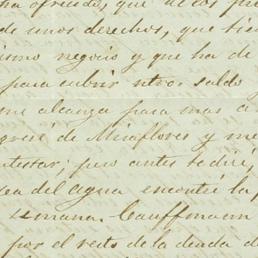 ha ofrecido, que de los pre
de unos derechos, que tien
ismo negocio y que ha de
para cubrir ntro. saldo
me alcanza para mas a
de Miraflores y me
ntestar; pero antes te diré,
del agua encontré la p
semana. Cauffmann
por el resto de la deuda d